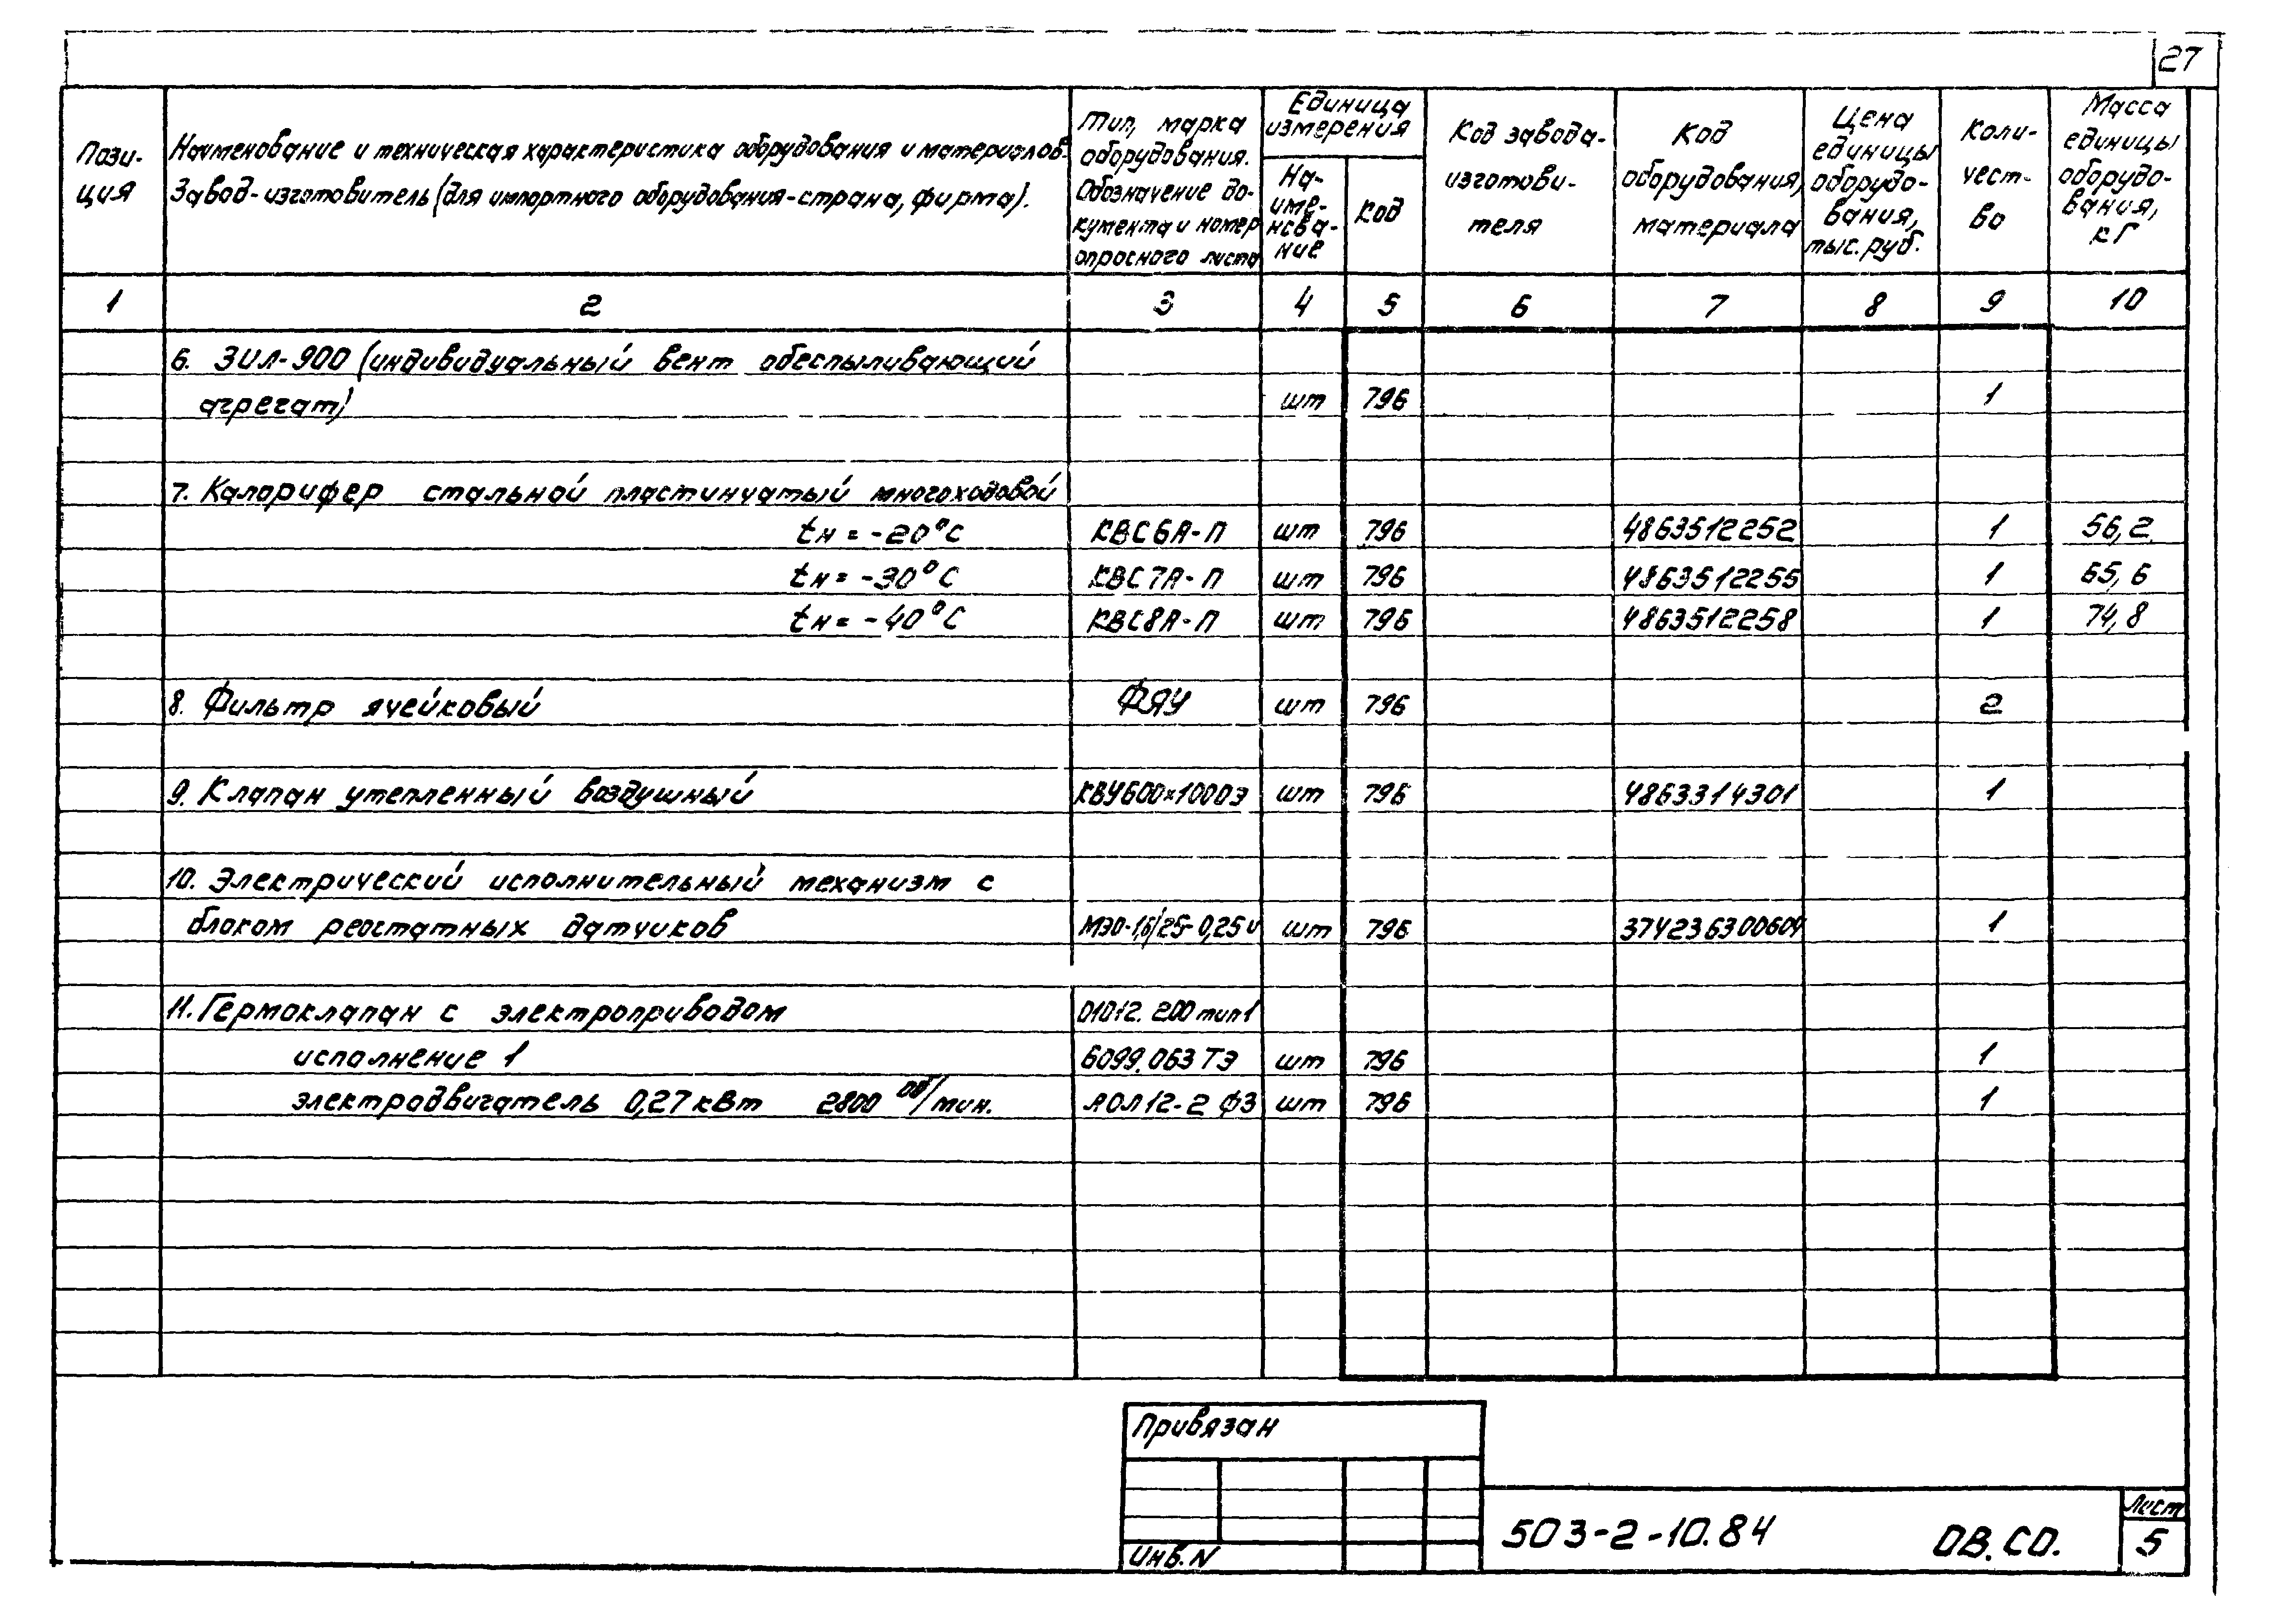 27
Пози-
ция
Наименование и техническая характеристика оборудования и материалов.
Завод-изготовитель (для импортного оборудования-страна, фирма).
Тип, марка
оборудования.
Обозначение до-
кумента и номер
опросного листа
Единица
измерения
На-
име-
нова-
ние
Код
Код завода-
изготови-
теля
Код
оборудования,
материала
Цена
единицы
оборудо-
вания,
тыс. руб.
Коли-
чест-
во
Масса
единицы
оборудо-
вания,
кг
1 2 3 4 5 6 7 8 9 10
6. ЗИЛ-900 (индивидуальный вент обеспыливающий
агрегат) шт 796 1
7. Калорифер стальной пластинчатый многоходовой
tн = -20°С КВС6А-П шт 796 4863512252 1 56,2
tн = -30°С КВС7А-П шт 796 4863512255 1 65,6
tн = -40°С КВС8А-П шт 796 4863512258 1 74,8
8. Фильтр ячейковый ФЯУ шт 796 2
9. Клапан утепленный воздушный КВУ600×1000Э шт 796 4863314301 1
10. Электрический исполнительный механизм с
блоком реостатных датчиков МЭО-1,6/25-0,25 шт 796 374236300604 1
11. Гермоклапан с электроприводом 01012.200 тип 1
исполнение 1 6099.063 ТЭ шт 796 1
электродвигатель 0,27 кВт 2800 об/мин. АОЛ12-2 Ф3 шт 796 1
Привязан
Инв. N
503-2-10.84
ОВ.СО.
Лист
5